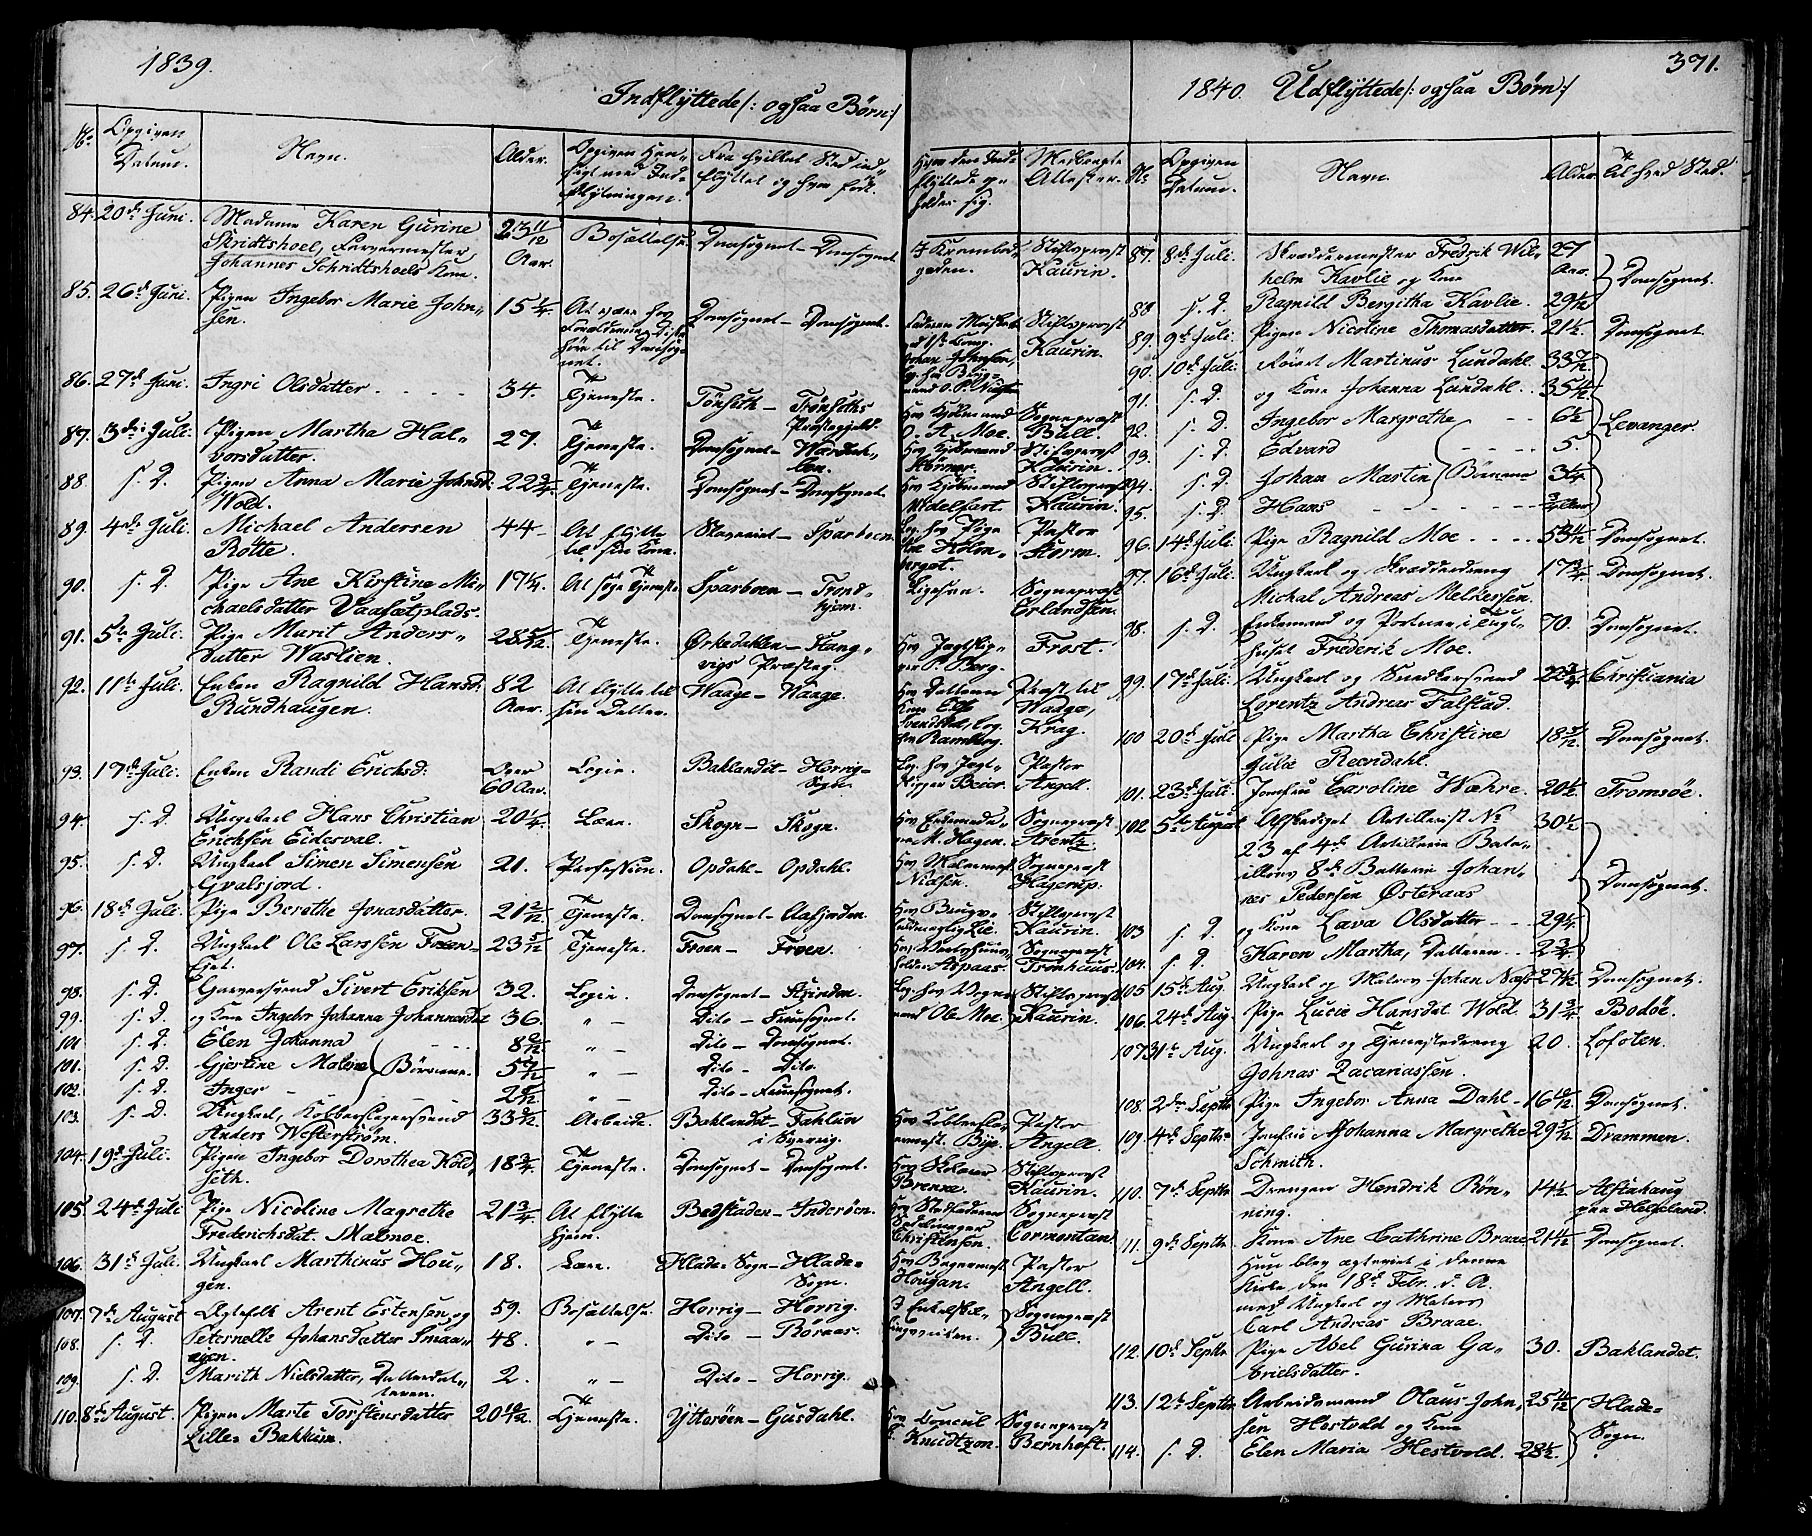 1839.
Indflyttede /: ogsaa Børn :/
No
Opgiven Datum.
Navn.
Alder.
Opgiven Hensigt med Indflytningen.
Fra hvilket Sted indflyttet og hvor født.
Hvor den Indflyttede opholder sig.
Medbragte Attester.
84. 20de Juni. Madame Karen Gurine Skridtshoel, Farvermester Johannes Schridtshoels Kone. 23 11/12 Aar. Bosættelse. Domsognet – Domsognet. Stiftsprost Kaurin.
85. 26de Juni. Pigen Ingebor Marie Johnsen. 15 1/4. Domsognet – Domsognet. Stiftsprost Kaurin.
86. 27de Juni. Ingri Olsdatter. 34. Tjeneste. Tönseth – Tönseths Præstegjeld. Hos Kjøbmand O. A. Moe. Sogneprest Bull.
87. 3die Juli. Pigen Martha Halvorsdatter. 27. Tjeneste. Domsognet – Værdalen. Hos Kjøbmand Störner. Stiftsprost Kaurin.
88. s. D. Pigen Anna Marie Johnsd. Wold. 22 3/4. Tjeneste. Domsognet – Domsognet. Hos Kjøbmand Midelfart. Stiftsprost Kaurin.
89. 4de Juli. Michael Andersen Rötte. 44 – At flytte til sin Kone. – Sparboen. Pastor Storm.
90. s. D. Pige Ane Kirstine Michaelsdatter Vaasætplads. 17 1/4. At søge Tjeneste. Sparboen – Trondhjem. Ligesom. Sogneprest Erlandsen.
91. 5te Juli. Pige Marit Andersdatter Waslien. 28 5/12. Tjeneste. Ørkedalen – Stangvigs Præsteg. P. Berg. Frost.
92. 11te Juli. Enken Ragnild Hansd. Rundhaugen. 82 Aar. At flytte til sin Datter. Waage – Waage. Prest til Waage, Krag.
93. 17de Juli. Enken Randi Erichsd. Over 60 Aar. Logie. Baklandet – Horrig Sogn. Pastor Angell.
94. s. D. Ungkarl Hans Christian Erichsen Eidesval. 20 1/4. Lære. Skogn – Skogn. M. Hagen. Sogneprest Arentz.
95. s. D. Ungkarl Simen Simensen Gvalsjord. 21. Profession. Opdahl – Opdahl. Hos Malermest. Nielsen. Sogneprest Hagerup.
96. 18de Juli. Pige Berethe Jonasdatter. 21 2/12. Tjeneste. Domsognet – Aafjorden. Stiftsprost Kaurin.
97. s. D. Ungkarl Ole Larssen Froen-Eiet. 23 5/12. Tjeneste. Froen – Froen. Aspaas. Sogneprest Tronhuus.
98. s. D. Garversvend Sivert Eriksen 32. Logie. Domsognet – Stjørdalen. Log. hos Vognmand Ole Moe. Stiftsprost Kaurin.
99. s. D. og Kone Ingebor Johanna Johannesdat 36. „ – Dito – Fruesognet.
101 s. D. Elen Johanna 8 2/12 „ – Dito – Domsognet.
101. s. D. Gjertine Malene } Børnene. „ – Dito – Dito.
102. s. D. Inger „ – Dito – Fruesognet.
103. s. D. Ungkarl, Kobberslagersvend Anders Westerstrøm. 33 Arbeide. Baklandet – Fahlun i Sverrig. Bye. Pastor Angell.
104. 19de Juli. Pigen Ingebor Dorothea Koldseth. 18 3/4. Tjeneste. Domsognet – Domsognet. Brenne. Stiftsprost Kaurin.
105. 24de Juli Pige Nicoline Magrethe Frederichsdat. Malmoe. 21 3/4. At flytte hjem. Bodstaden – Inderøen. Christensen. Sogneprest Cormontan.
106. 31te Juli. Ungkarl Marthinus Hougen. 18. Lære. Hlade-Sogn – Hlade-Sogn. Hos Bagermest. Hougan. Pastor Angell.
107. 7de August Ægtefolk Arent Estensen og 59. Bosættelse. Horrig – Horrig. Sogneprest Bull.
108. s. D. Peternelle Johansdatter Smaaøien. 48. „ – Dito – Röraas.
109. s. D. Marith Nielsdatter, Datterdatteren. 2. „ – Dito – Horrig.
110. 8de August. Pigen Marte Torstensdatter Lille-Bakken. 20 Tjeneste. Ytterøen – Gusdahl. Hos Consul Knudtzon. Sogneprest Bernhoft.
371.
1840. Udflyttede /: ogsaa Børn :/
No
Opgiven Datum.
Navn.
Alder
Til hvad Sted.
87. 8de Juli. Skræddermester Fredrik Wilhelm Kavlie og Kone 27 Aar. Domsognet.
88 s. D. Ragnild Bergitha Kavlie.
89. 9de Juli. Pigen Nicoline Thomasdatter. 21 1/2. Domsognet
90. 10de Juli. Martinus Lundahl. 33 7/12 Levanger.
91. s. D. og Kone Johanna Lundahl.
92. s. D. Ingebor Margrethe 6 1/2
93. s. D. Edvard 5.
94. s. D. Johan Martin } Børnene 3 1/4
95. s. D. Hans
96. 14de Juli. Pige Ragnild Moe Domsognet.
97. 16de Juli. Ungkarl og Skrædderdreng Michal Andreas Melkersen. 17 3/4. Domsognet.
98. s. D. Enkemand og Portner i Tugthuset Frederik Moe. 70. Domsognet.
99. 17de Juli. Ungkarl og Snedkersvend Lorentz Andreas Falstad. 22 3/4 Christiania
100 20de Juli Pige Martha Christine Julie Reendahl. 18 5/12. Domsognet.
101. 23de Juli. Jomfru Caroline Wæhre. 20 1/2. Tromsøe.
102 5te August Afskediget Artillerist No 23 af 4de Artillerie Batallions 8de Batterie Johannes Pedersen Østeraas 30 1/2 Domsognet.
103 s. D. og Kone Lava Olsdatter 29 1/4.
104. s. D. Karen Martha, Datteren 2 3/4
105 15de Aug. Ungkarl og Matros Johan Næss Domsognet.
106. 24de Aug. Pige Lucie Hansdat Wold. 31 3/4. Bodöe.
107 31te Aug. Ungkarl og Tjenestedreng Johnas Zacariassen. 20. Lofoten.
108. 2den Septbr Pige Ingebor Anna Dahl – 16 Domsognet.
109. 4de Septbr Jomfru Johanna Margrethe Schmith. 29 Drammen.
110. 7de Septbr Drengen Hendrik Rönning. 14 1/2 Alstahaug paa Helgeland.
111. 9de Septbr Kone Ane Cathrine Braae Hun blev ægteviet i denne Kirke den 18de Febr. d. A. med Ungkarl og Matros Carl Andreas Braae. Domsognet.
112. 10de Septbr Pige Abel Gurina Gabrielsdatter. 30. Baklandet.
113. 12te Septbr Arbeidsmand Olaus Johnsen Hestvold og Kone Hlade-Sogn.
114. s. D. Elen Maria Hestvold. 28 1/2.